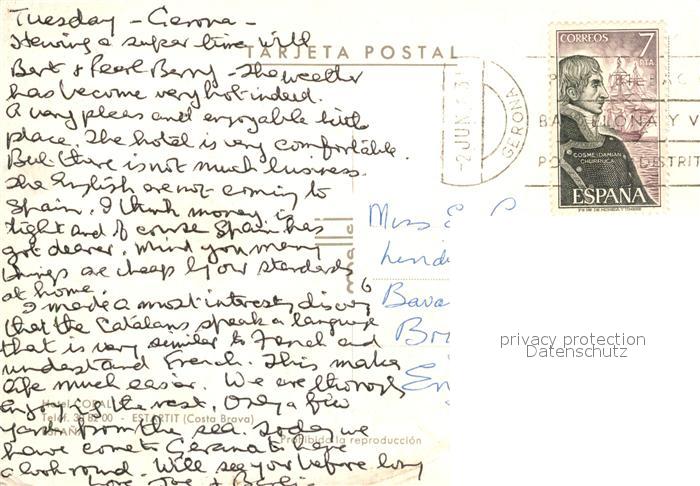 Tuesday - Gerona -
Having a super time with
TARJETA POSTAL
Bert & Pearl Berry - The weather
has become very hot indeed.
A very pleas and enjoyable little
place. The hotel is very comfortable.
But there is not much business.
The English are not coming to
Spain. I think money is
tight and of course Spain has
got dearer. Mind you many
things are cheap by our standards
at home.
I made a most interesting discovery
that the Catalans speak a language
that is very similar to French and
understand French. This makes
life much easier. We are thoroughly
enjoying the rest. Only a few
yards from the sea. Today we
have come to Gerona to have
a look round. Will see you before long
Love Joe &
Hotel CORAL
Teléf. 31 82 00 - ESTARTIT (Costa Brava)
ESPAÑA
Prohibida la reproducción
-2 JUN
GERONA
BARCELONA Y
DISTRIT
CORREOS 7
PTA
COSME DAMIAN
CHURRUCA
ESPAÑA
Miss E
6
Bava
Bri
En
privacy protection
Datenschutz